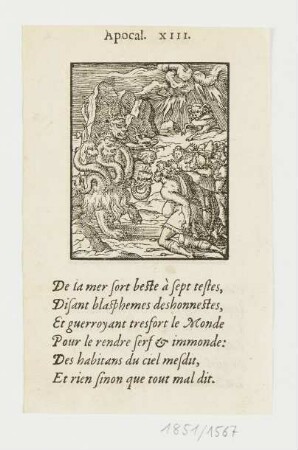 Apocal. XIII.
De la mer sort beste à sept testes,
Disant blasphemes deshonnestes,
Et guerroyant tresfort le Monde
Pour le rendre serf & immonde:
Des habitans du ciel mesdit,
Et rien sinon que tout mal dit.
1851/1567